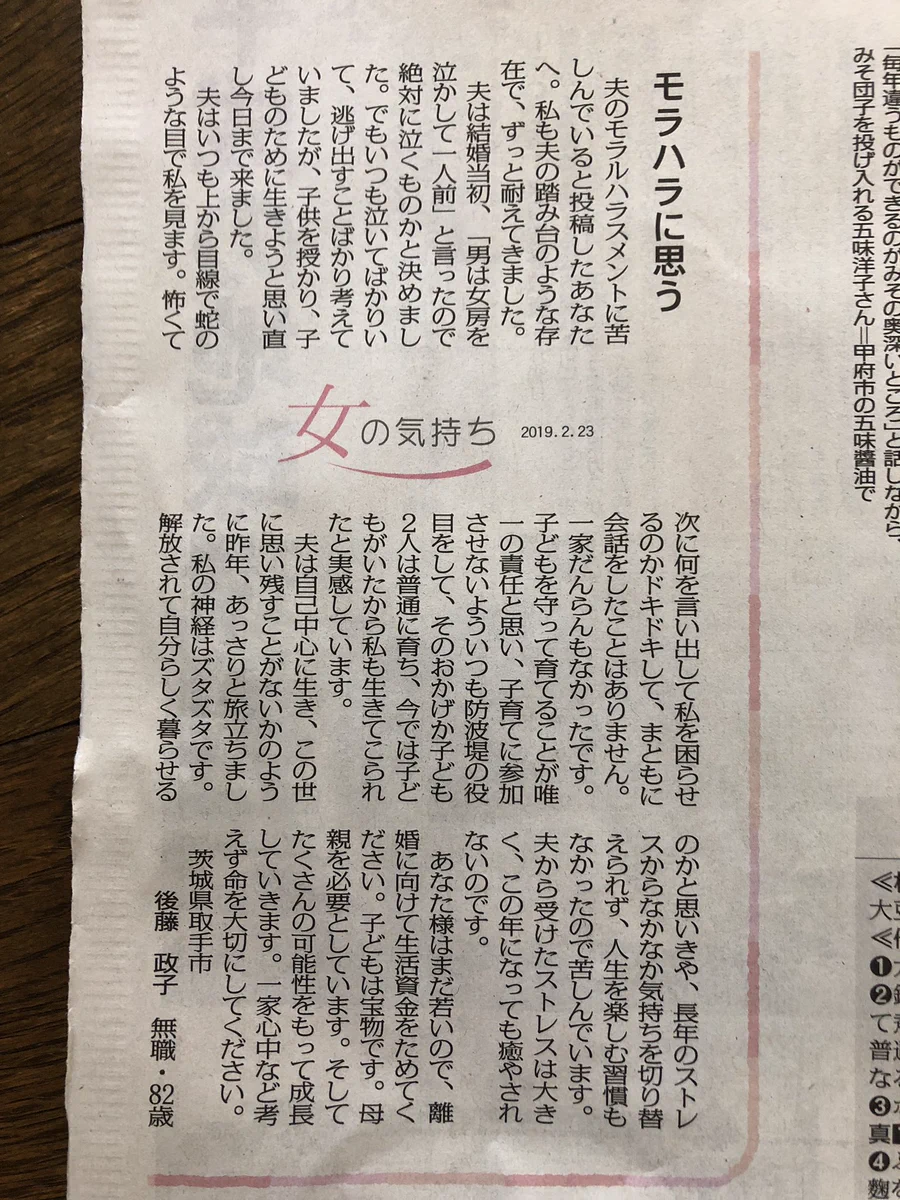 「毎年違うものができるのがみその奥深いところ」と話しながら、
みそ団子を投げ入れる五味洋子さん＝甲府市の五味醤油で
モラハラに思う
夫のモラルハラスメントに苦
しんでいると投稿したあなた
へ。私も夫の踏み台のような存
在で、ずっと耐えてきました。
夫は結婚当初、「男は女房を
泣かして一人前」と言ったので
絶対に泣くものかと決めまし
た。でもいつも泣いてばかりい
て、逃げ出すことばかり考えて
いましたが、子供を授かり、子
どものために生きようと思い直
し今日まで来ました。
夫はいつも上から目線で蛇の
ような目で私を見ます。怖くて
女の気持ち
2019.2.23
次に何を言い出して私を困らせ
るのかドキドキして、まともに
会話をしたことはありません。
一家だんらんもなかったです。
子どもを守って育てることが唯
一の責任と思い、子育てに参加
させないよういつも防波堤の役
目をして、そのおかげか子ども
2人は普通に育ち、今では子ど
もがいたから私も生きてこられ
たと実感しています。
夫は自己中心に生き、この世
に思い残すことがないかのよう
に昨年、あっさりと旅立ちまし
た。私の神経はズタズタです。
解放されて自分らしく暮らせる
のかと思いきや、長年のストレ
スからなかなか気持ちを切り替
えられず、人生を楽しむ習慣も
なかったので苦しんでいます。
夫から受けたストレスは大き
く、この年になっても癒やされ
ないのです。
あなた様はまだ若いので、離
婚に向けて生活資金をためてく
ださい。子どもは宝物です。母
親を必要としています。そして
たくさんの可能性をもって成長
していきます。一家心中など考
えず命を大切にしてください。
茨城県取手市
後藤 政子 無職・82歳
大豆
❶
❷
て
普
な
❸
真
❹
麹